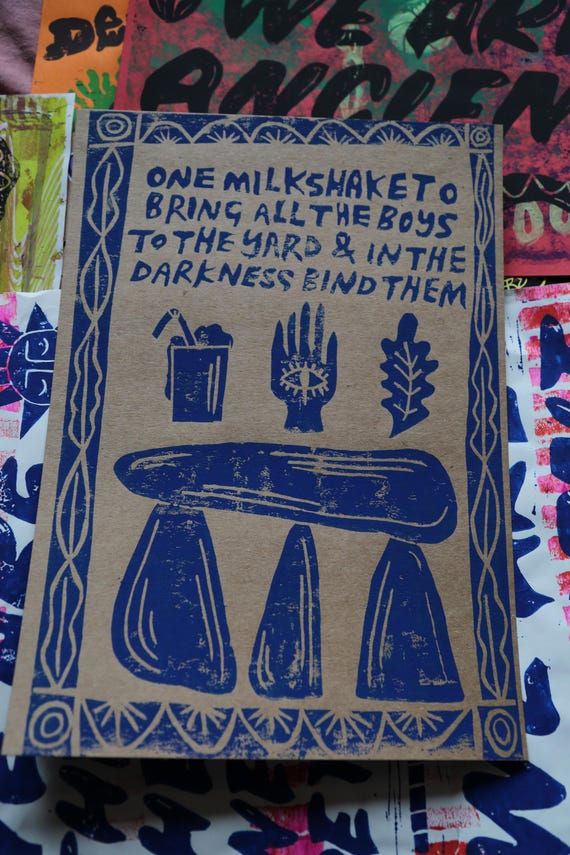 DE
WE ARE
ANCIEN
ONE MILKSHAKE TO
BRING ALL THE BOYS
TO THE YARD & IN THE
DARKNESS BIND THEM